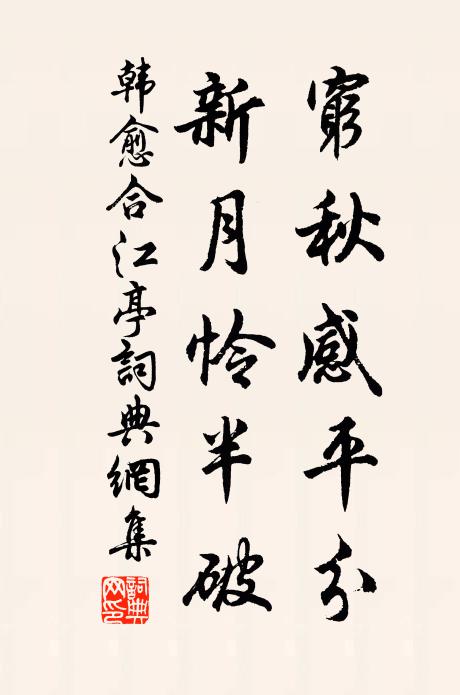 窮秋感平分
新月怜半破
韩愈合江亭詞典網集
詞典网印